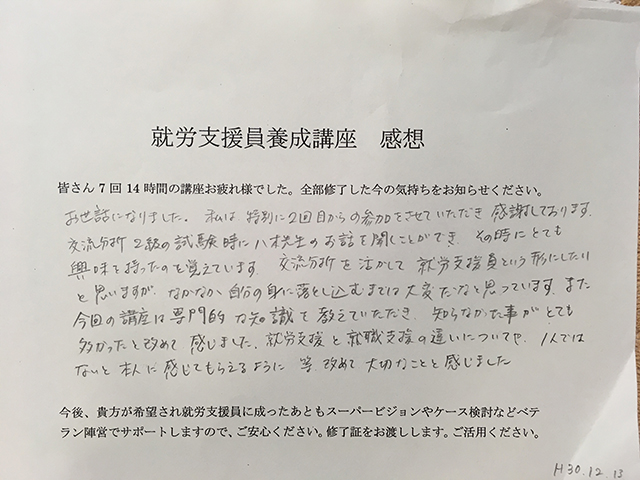 就労支援員養成講座　感想
皆さん7回14時間の講座お疲れ様でした。全部修了した今の気持ちをお知らせください。
お世話になりました。私は特別に2回目からの参加をさせていただき感謝しております。
交流分析2級の試験時に八木先生のお話を聞くことができ、その時にとても
興味を持ったのを覚えています。交流分析を活かして就労支援員という形にしたい
と思いますが、なかなか自分の身に落とし込むまでは大変だなと思っています。また
今回の講座は専門的な知識を教えていただき、知らなかった事がとても
多かったと改めて感じました。就労支援と就職支援の違いについてや、1人では
ないと本人に感じてもらえるように 等、改めて大切なことと感じました
今後、貴方が希望され就労支援員に成ったあともスーパービジョンやケース検討などベテ
ラン陣営でサポートしますので、ご安心ください。修了証をお渡しします。ご活用ください。
H30.12.13